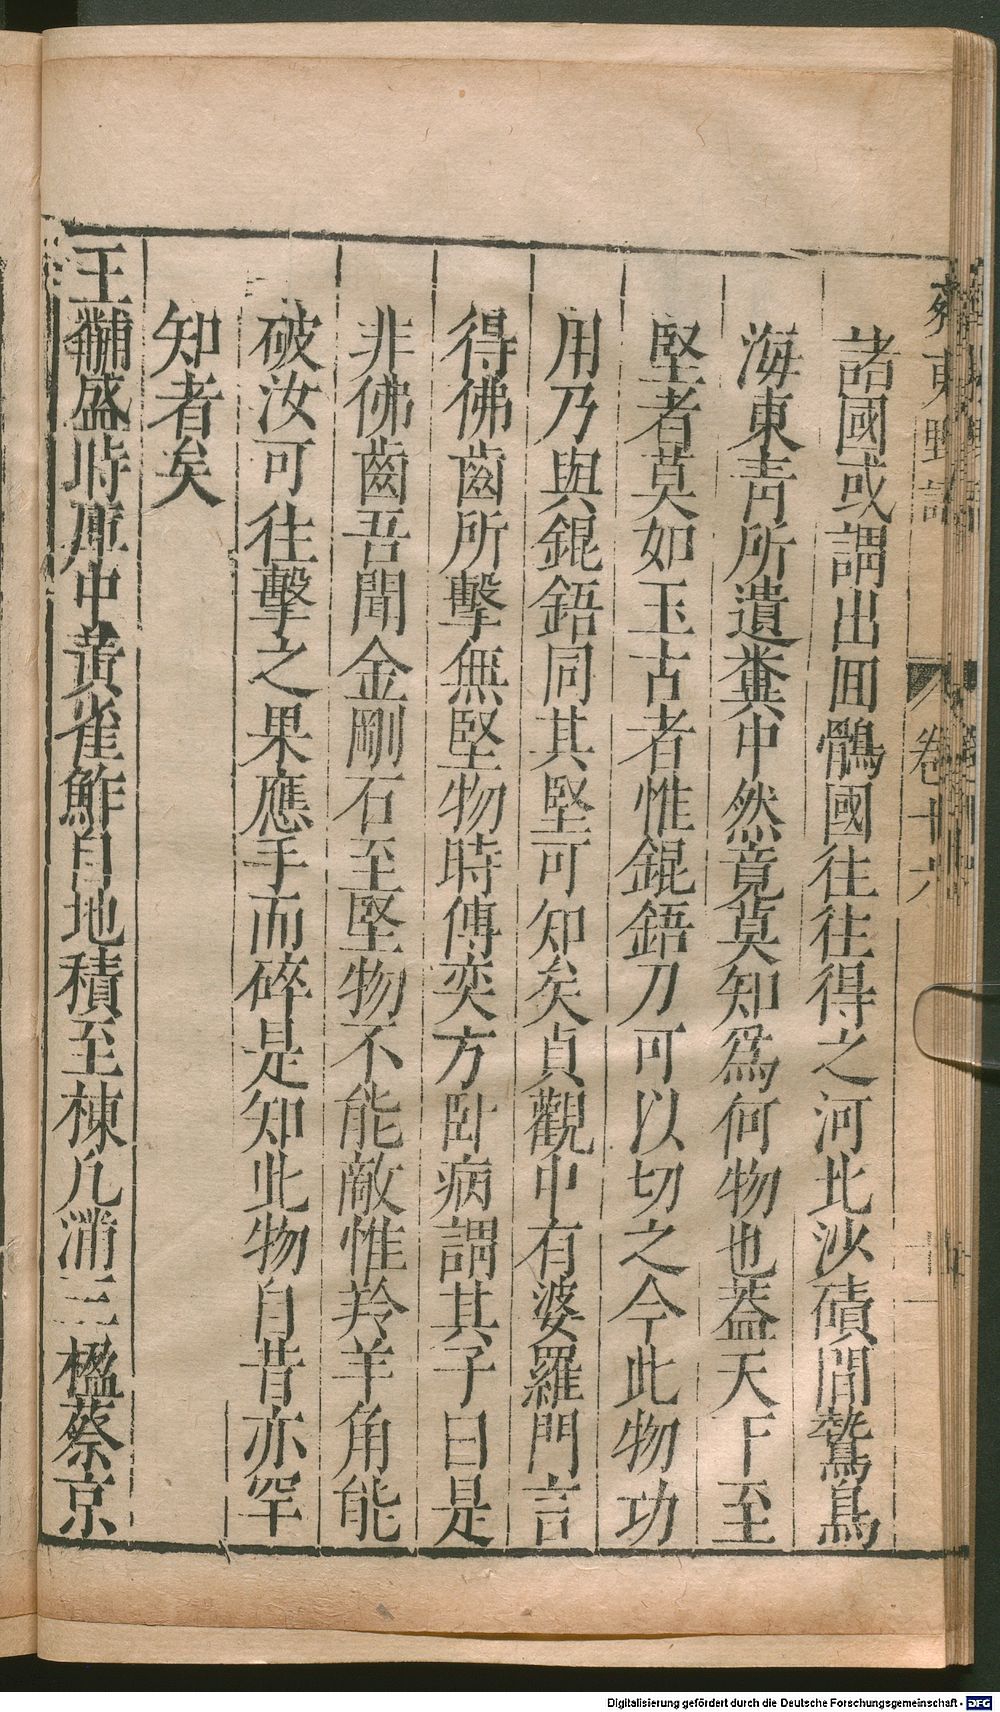 齊東野語
卷十六
諸國或謂出回鶻國往往得之河北沙磧間鷙鳥
海東青所遺糞中然竟莫知爲何物也葢天下至
堅者莫如玉古者惟錕鋙刀可以切之今此物功
用乃與錕鋙同其堅可知矣貞觀中有婆羅門言
得佛齒所擊無堅物時傳奕方卧病謂其子曰是
非佛齒吾聞金剛石至堅物不能敵惟羚羊角能
破汝可往擊之果應手而碎是知此物自昔亦罕
知者矣
王黼盛時庫中黄雀鮓自地積至棟凡滿三楹蔡京
Digitalisierung gefördert durch die Deutsche Forschungsgemeinschaft - DFG